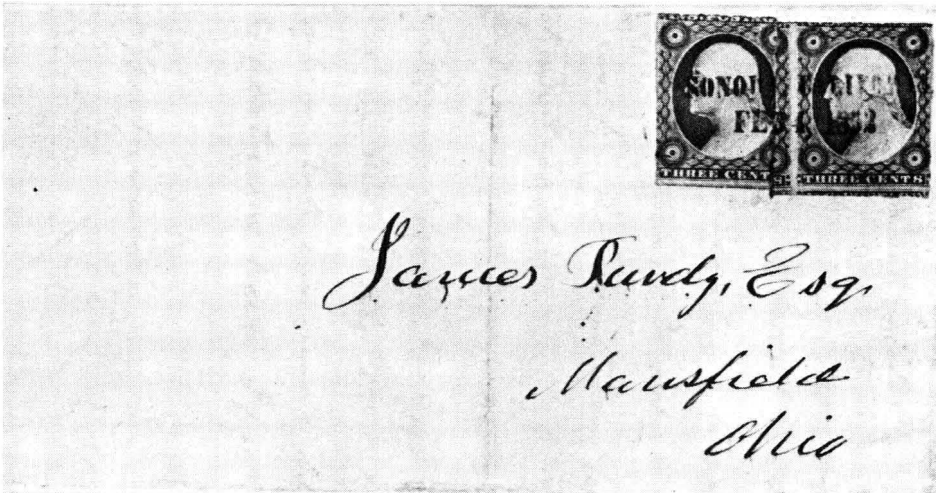 THREE CENTS THREE CENTS
James Purdy, Esq.
Mansfield
Ohio